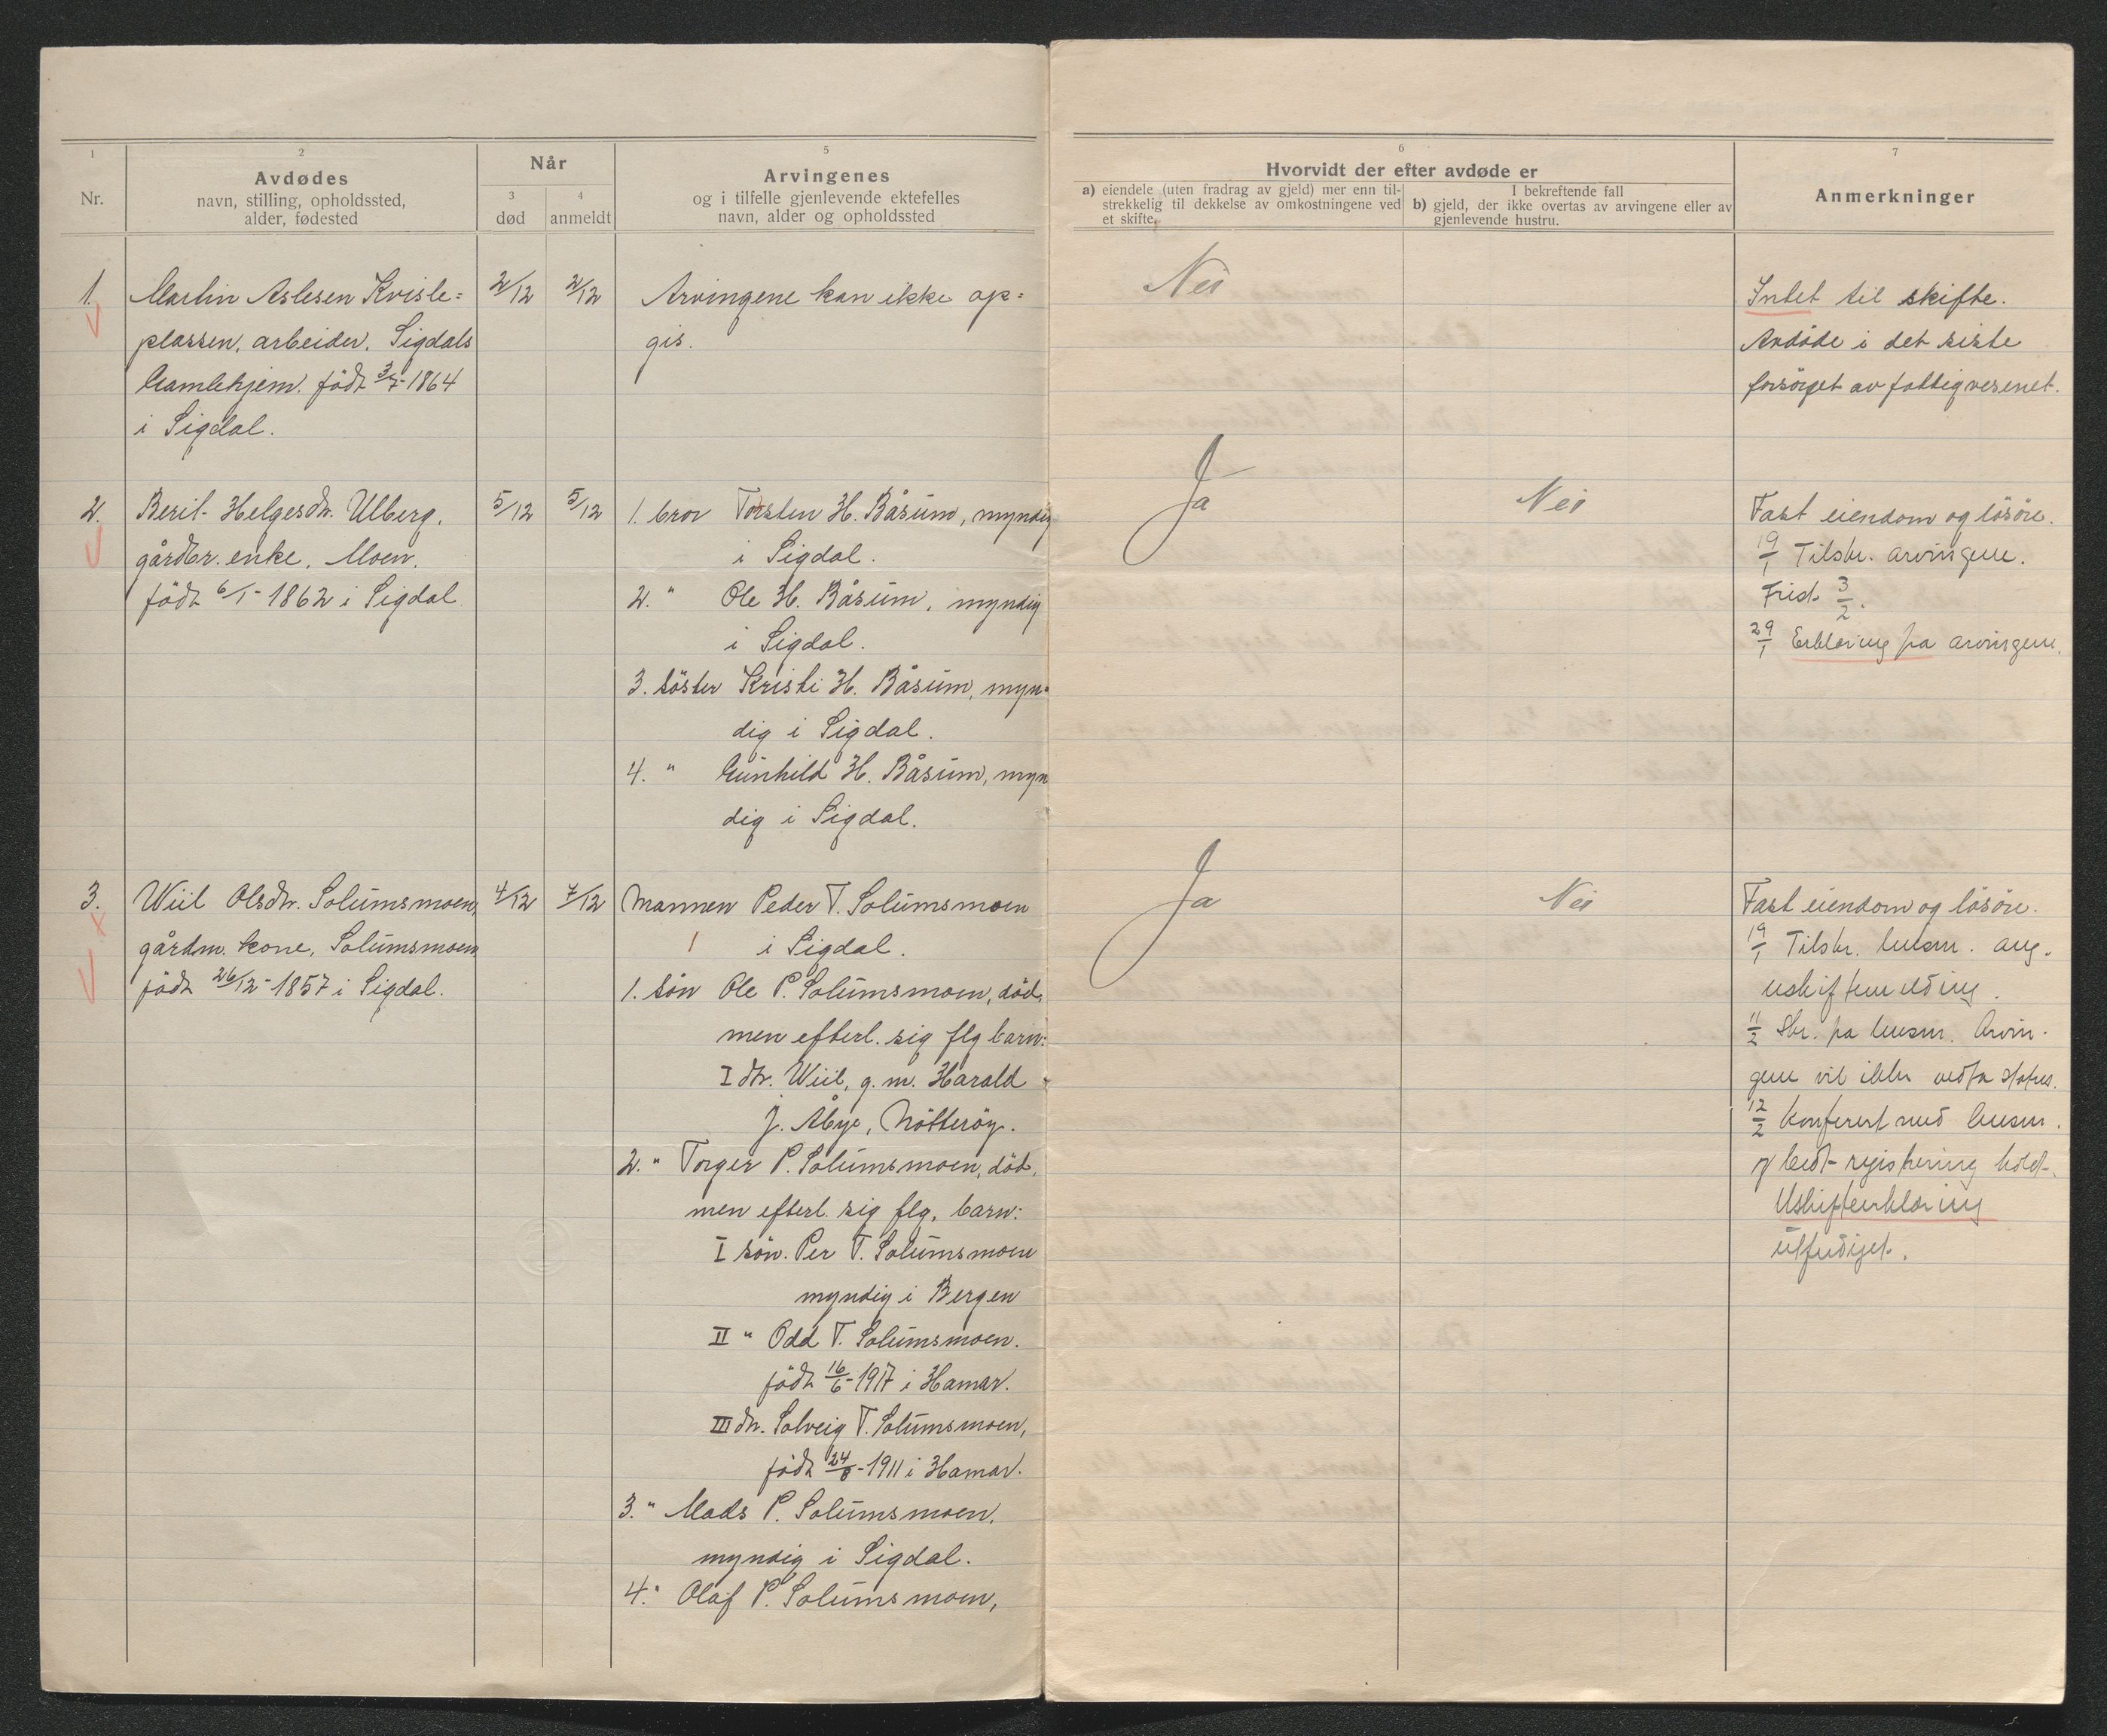 1
2
Når
5
Nr.
Avdødes
navn, stilling, opholdssted,
alder, fødested
3
død
4
anmeldt
Arvingenes
og i tilfelle gjenlevende ektefelles
navn, alder og opholdssted
6
Hvorvidt der efter avdøde er
a) eiendele (uten fradrag av gjeld) mer enn til-
strekkelig til dekkelse av omkostningene ved
et skifte.
I bekreftende fall
b) gjeld, der ikke overtas av arvingene eller av
gjenlevende hustru.
7
Anmerkninger
1. Martin Aslesen Kvisle=
plassen, arbeider, Sigdals
Gamlehjem. födt 3/7-1864
i Sigdal.
2/12 2/12
Arvingene kan ikke op=
gis.
Nei
Intet til skifte.
Avdöde i det siste
forsörget av fattigvesenet.
2. Berit Helgesdtr. Ulberg,
gårdbr. enke, Moen,
födt 6/1-1862 i Sigdal
5/12 5/12
1. bror Torsten H. Båsum, myndig
i Sigdal.
2. " Ole H. Båsum, myndig
i Sigdal.
3. söster Kristi H. Båsum, myn=
dig i Sigdal.
4. " Gunhild H. Båsum, myn
dig i Sigdal.
Ja
Nei
Fast eiendom og lösöre.
19/1 Tilskr. arvingene.
Frist 3/2.
29/1 Erklæring fra arvingene.
3. Wiil Olsdtr. Solumsmoen,
gårdm. kone, Solumsmoen
födt 26/12-1857 i Sigdal.
4/12 7/12
Mannen Peder T. Solumsmoen
i Sigdal.
1. sön Ole P. Solumsmoen, död,
men efterl. sig flg barn:
I dtr. Wiil, g. m. Harald
J. Åbye, Nötteröy.
2. " Torger P. Solumsmoen, död,
men efterl. sig flg. barn:
I sön. Per T. Solumsmoen
myndig i Bergen
II " Odd T. Solumsmoen.
födt 16/6-1917 i Hamar.
III dtr. Solveig T. Solumsmoen,
födt 24/8-1911 i Hamar.
3. " Mads P. Solumsmoen,
myndig i Sigdal.
4. " Olaf P. Solumsmoen,
Ja
Nei
Fast eiendom og lösöre.
19/1 Tilskr. lensm. ang.
uskiftemelding.
11/2 Skr. fra lensm. Arvin-
gene vil ikke vedta status.
12/2 Konferert med lensm.
registrering holdt.
Uskifteerklæring
utferdiget.